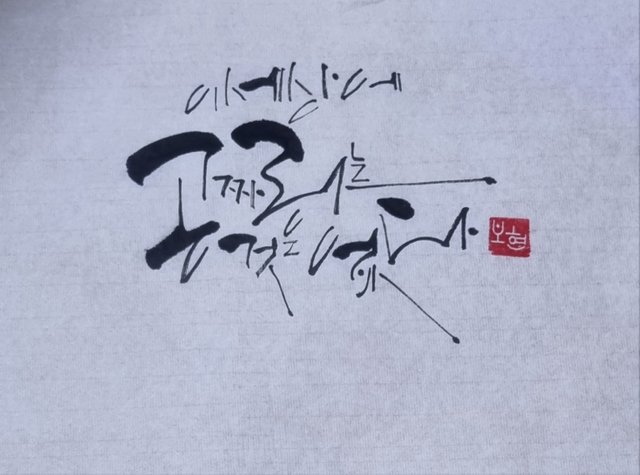 이 세상에
공짜라는
것은 없다
보현